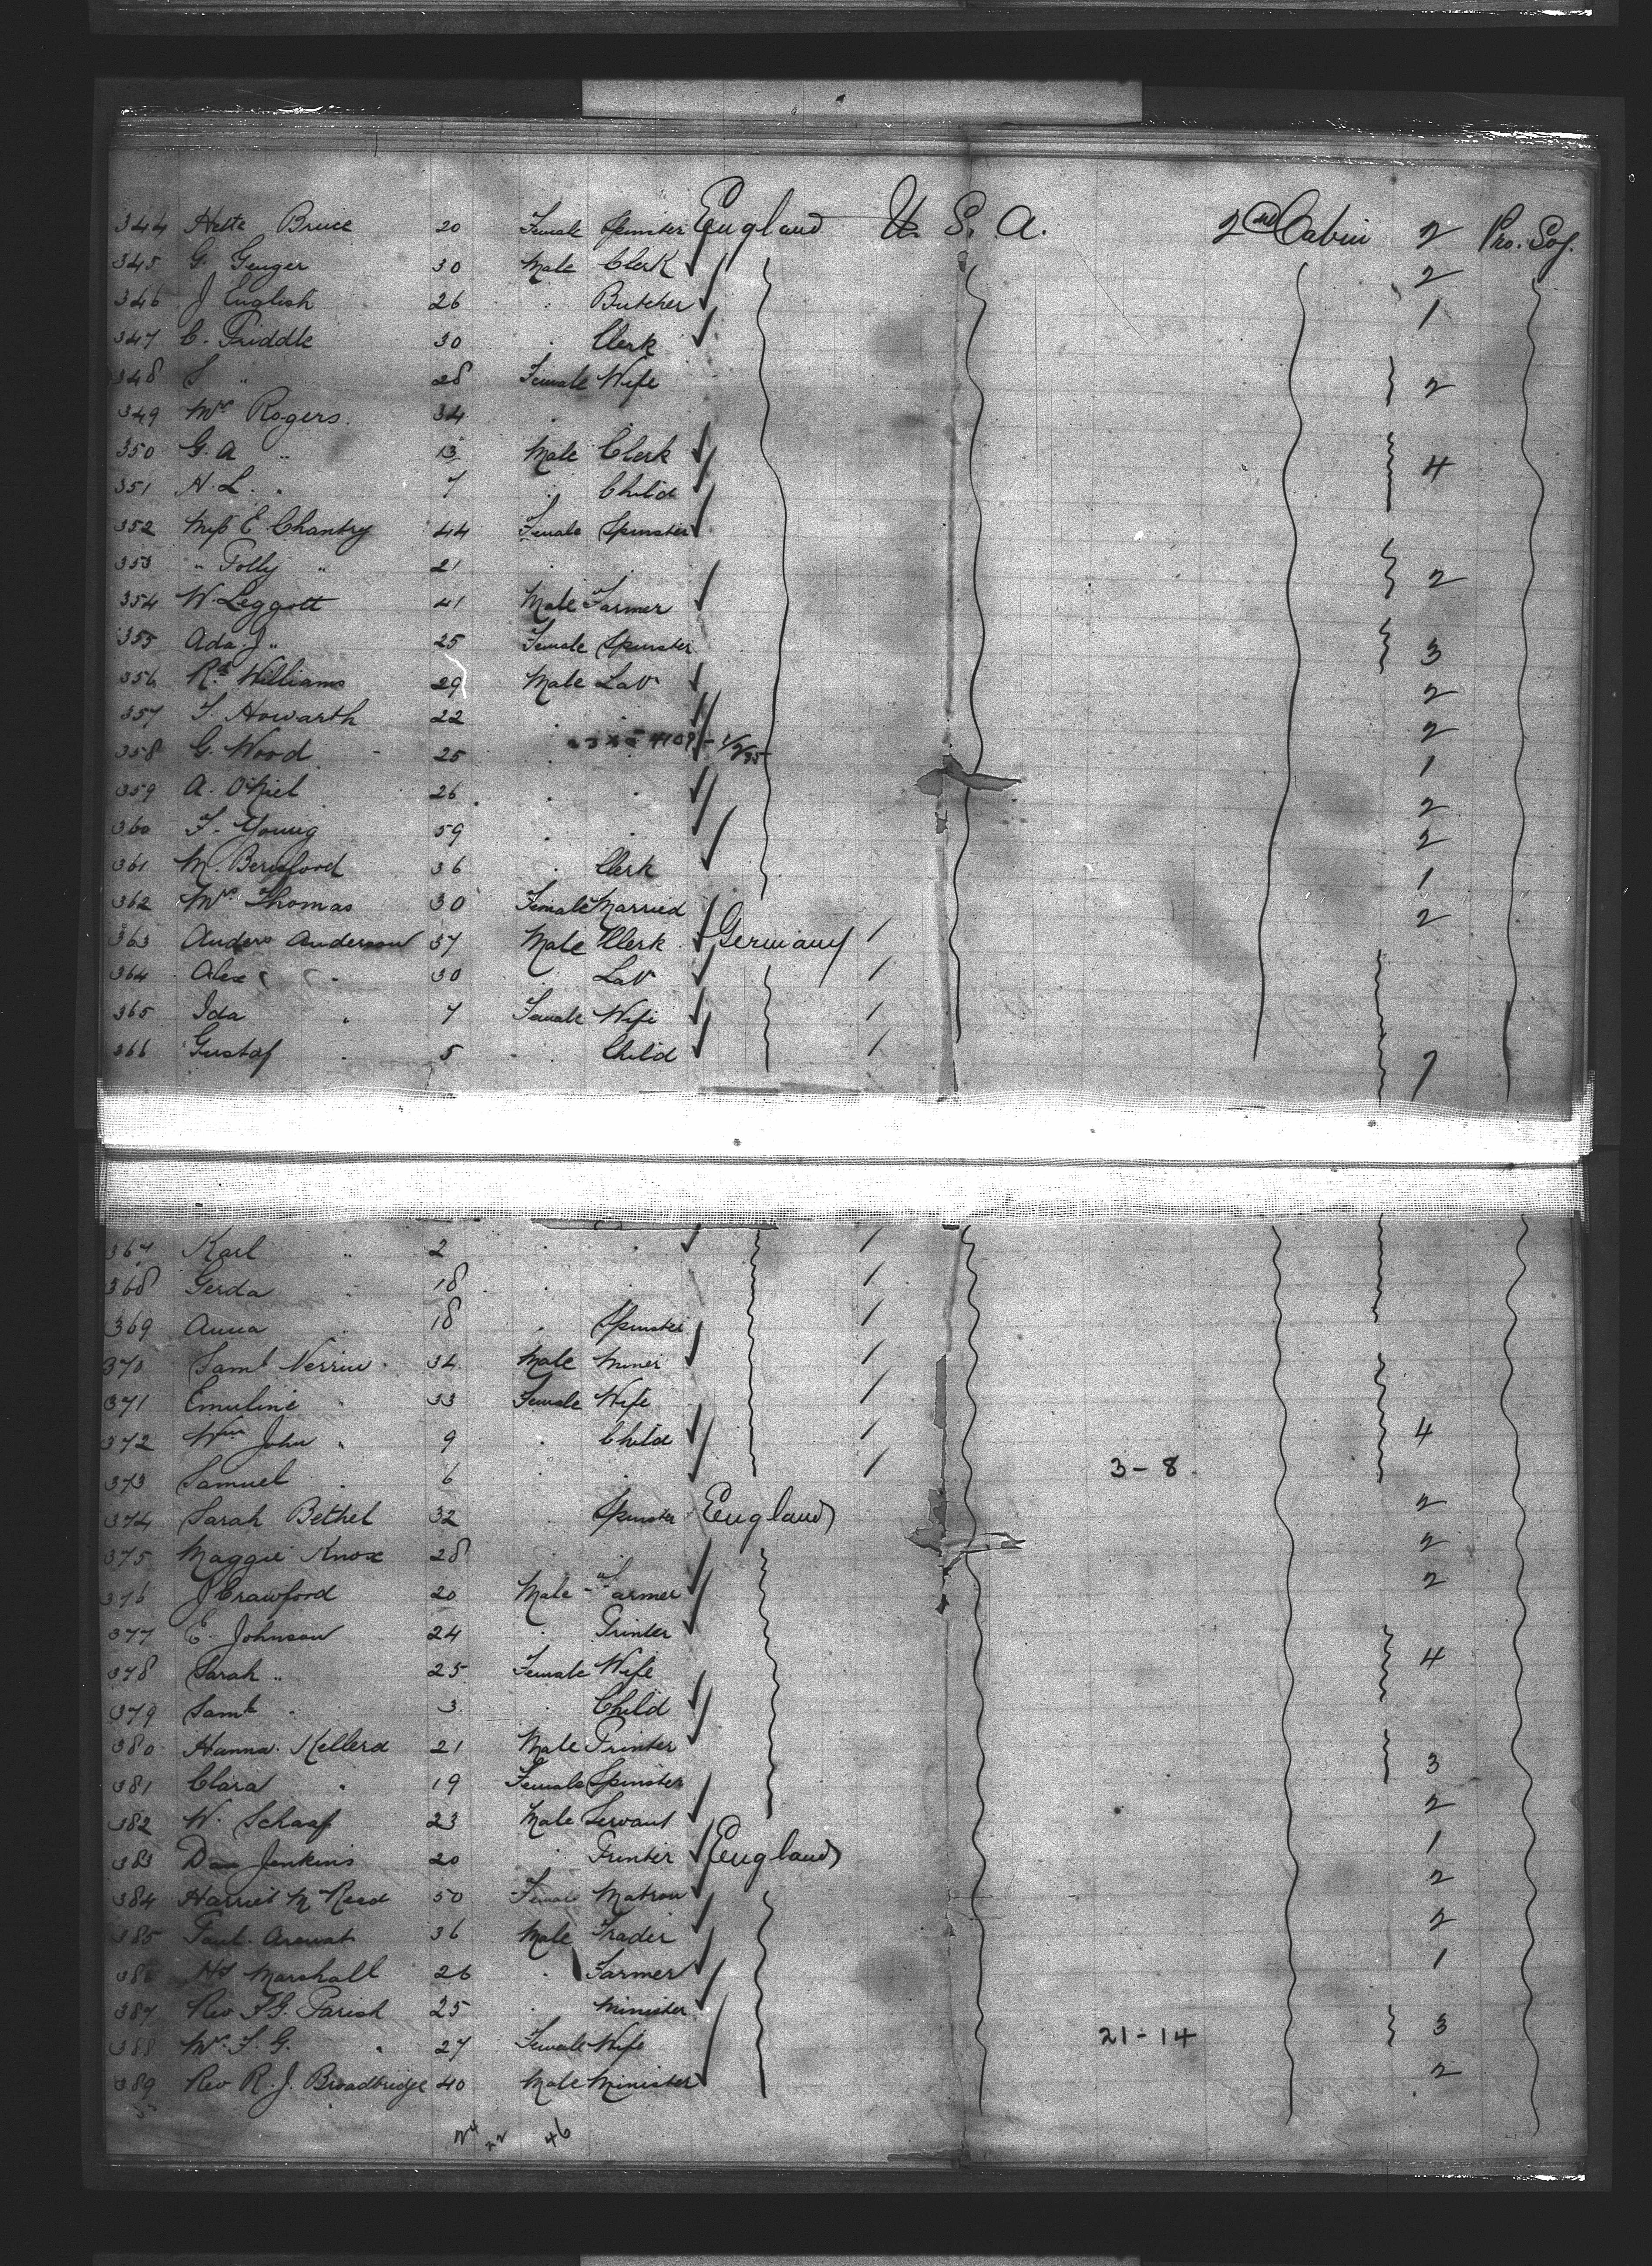 344 Bruce 20 Female Spinster England U. S. A. 2nd Cabin 2 Pro. Soj.
345 G. Genger 30 Male Clerk 2
346 J English 26 " Butcher 1
347 C. Priddle 30 " Clerk
348 S " 28 Female Wife 2
349 Mrs Rogers 34 " "
350 G. A " 13 Male Clerk 4
351 H. L. " 7 " Child
352 Miss E. Chantry 44 Female Spinster
353 " Polly " 21 " " 2
354 W. Leggott 41 Male Farmer
355 Ada J " 25 Female Spinster 3
356 Rd Williams 29 Male Lab 2
357 T. Howarth 22 " " 2
358 G. Wood 25 " " 1
359 A. O'Niel 26 " " 2
360 F. Young 59 " " 2
361 M. Beresford 36 " Clerk 1
362 Mrs Thomas 30 Female Married 2
363 Anders Anderson 37 Male Clerk Germany /
364 Alex " 30 " Lab /
365 Ida " 7 Female Wife /
366 Gustaf " 5 " Child / 7
367 Karl " 2 " " /
368 Gerda " 18 " " /
369 Anna " 18 " Spinster /
370 Saml 34 Male Miner /
371 Emuline " 33 Female Wife /
372 Wm John " 9 " Child / 4
373 Samuel " 6 " " / 3-8
374 Sarah Bethel 32 " Spinster England 2
375 Maggie Knox 28 " " 2
376 J Crawford 20 Male Farmer 2
377 E. Johnson 24 " Printer
378 Sarah " 25 Female Wife 4
379 Saml " 3 " Child
380 Hanna Kellerd 21 Male Printer
381 Clara " 19 Female Spinster 3
382 W. Schaaf 23 Male Servant 2
383 Dan Jenkins 20 " Printer England 1
384 Harriet M Reed 50 Female Matron 2
385 Paul 36 Male Trader 2
386 Marshall 26 " Farmer 1
387 Rev F. G. Parish 25 " Minister
388 Mrs F. G. " 27 Female Wife 21-14 3
389 Rev R. J. Broadbridge 40 Male Minister 2
24 22 46